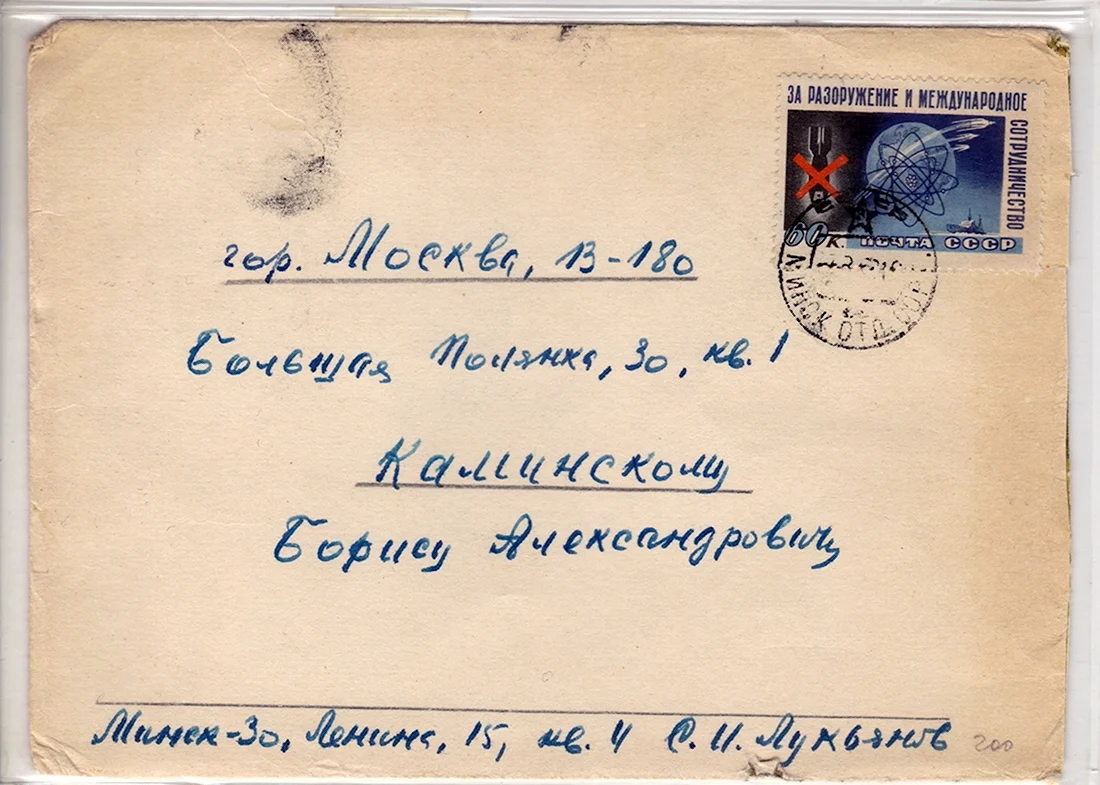 ЗА РАЗОРУЖЕНИЕ И МЕЖДУНАРОДНОЕ
СОТРУДНИЧЕСТВО
60 К. ПОЧТА СССР
МИНСК ОТД.
гор. Москва, В-180
Большая Полянка, 30, кв. 1
Каминскому
Борису Александровичу
Минск-30, Ленина, 15, кв. 4 С. И. Лукьянов
200